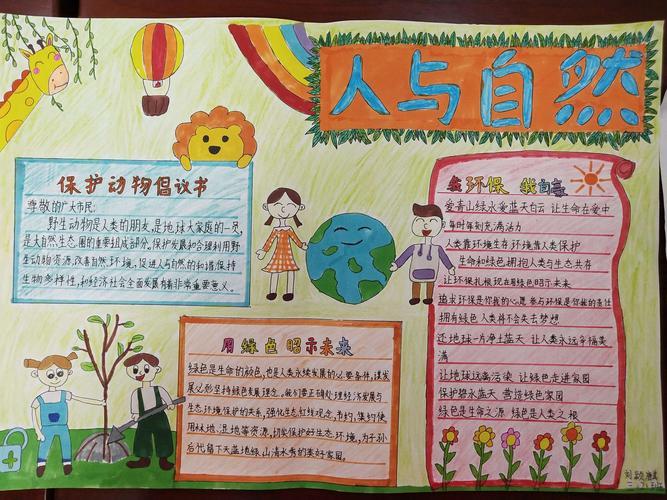 人与自然
保护动物倡议书
尊敬的广大市民:
野生动物是人类的朋友,是地球大家庭的一员,
是大自然生态圈的重要组成部分,保护发展和合理利用野
生动物资源,改善自然环境,促进人与自然的和谐,保持
生物多样性,和经济社会全面发展有着非常重要意义.
我环保 我自豪
爱青山绿水爱蓝天白云 让生命在爱中
每时每刻充满活力
人类靠环境生存 环境靠人类保护
生命和绿色拥抱人类与生态共存
让环保扎根现在用绿色昭示未来
追求环保是你我的心愿 参与环保是你我的责任
拥有绿色 人类将不会失去梦想
还地球一片净土蓝天 让人类永远幸福美
满
让地球远离污染 让绿色走进家园
保护碧水蓝天 营造绿色家园
绿色是生命之源 绿色是人类之根
用绿色昭示未来
绿色是生命的底色,也是人类永续发展的必要条件,谋发
展必须坚持绿色发展理念,我们要正确处理经济发展与
生态环境保护的关系,强化生态红线观念,节约、集约使
用林地、湿地等资源,切实保护好生态环境,为子孙
后代留下天蓝地绿、山清水秀的美好家园.